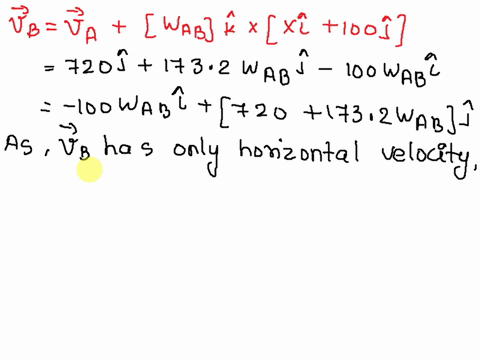 v⃗_B = v⃗_A + [W_AB] k̂ × [xî + 100ĵ]
= 720ĵ + 173.2 W_AB ĵ - 100 W_AB î
= -100 W_AB î + [720 + 173.2 W_AB] ĵ
As, v⃗_B has only horizontal velocity,